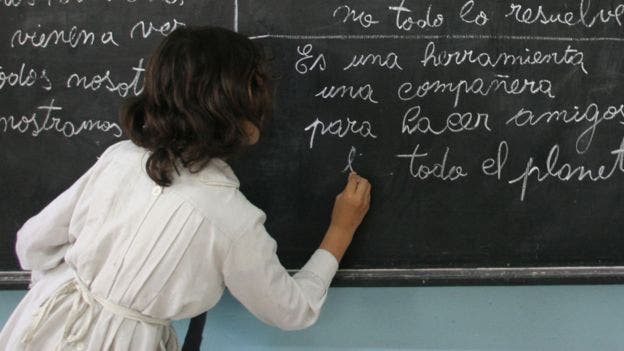 vienen a ver
todos
mostramos
no todo lo resuelve
Es una herramienta
una compañera
para hacer amigos
todo el planeta